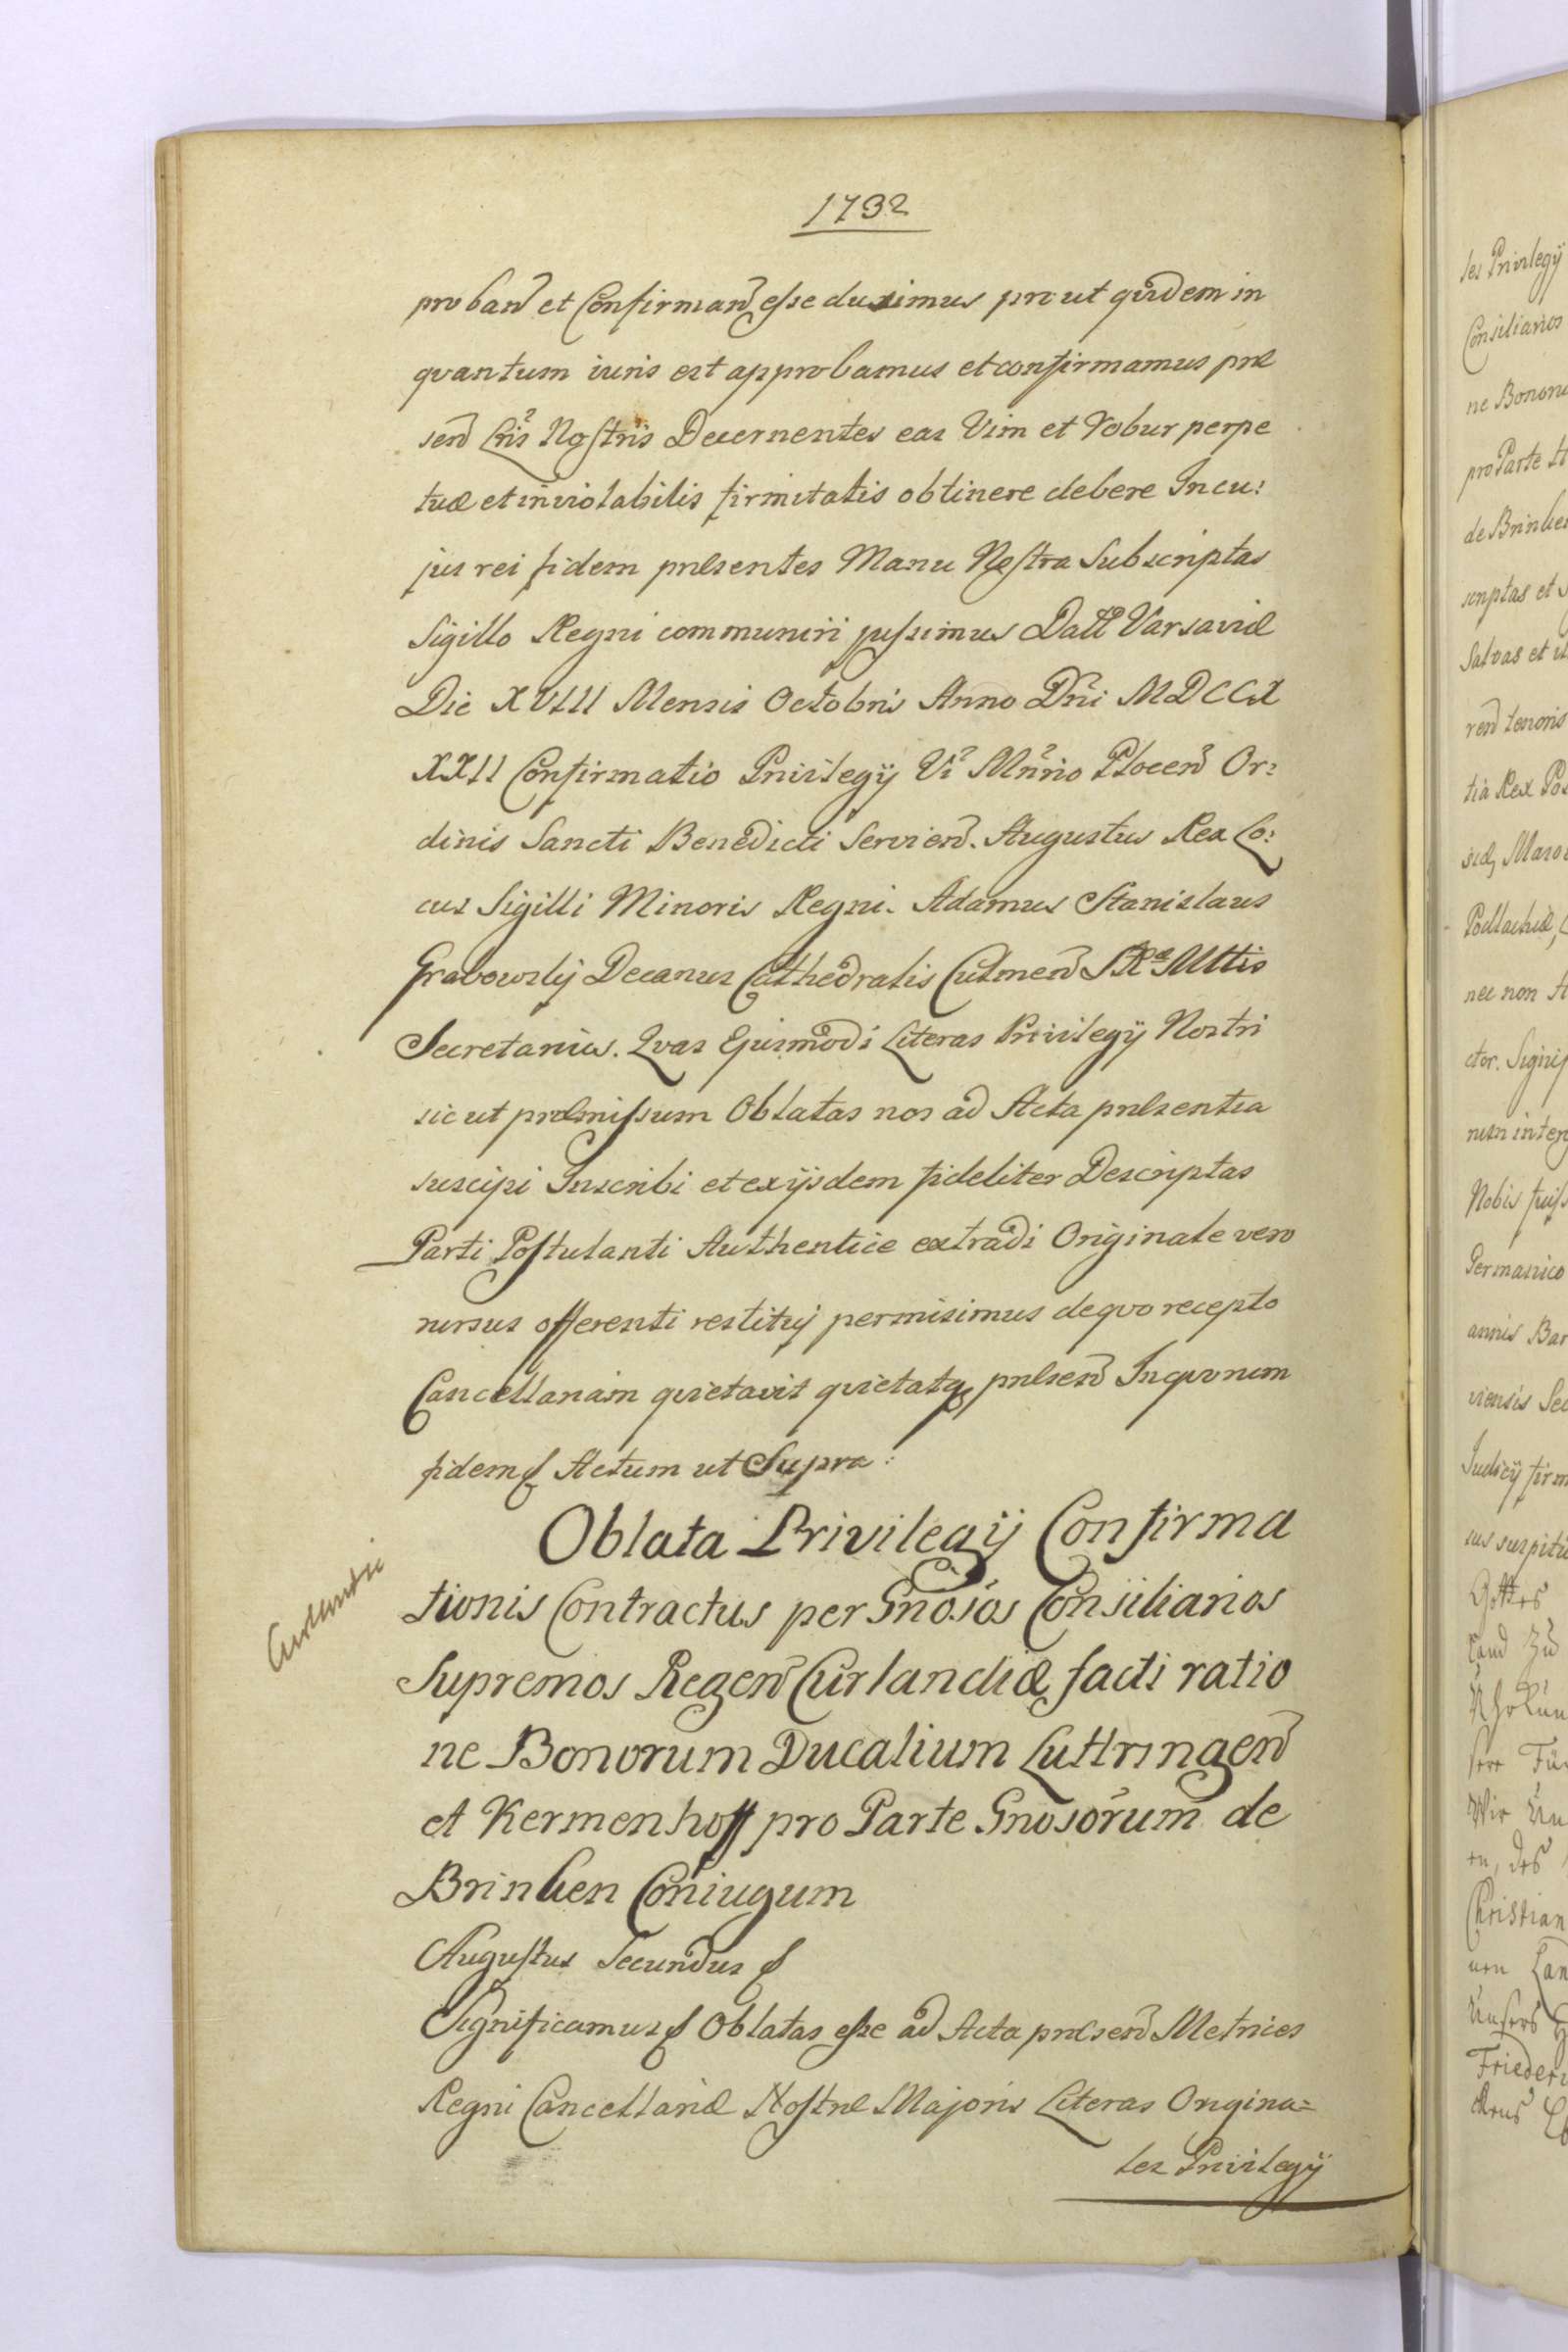 1732
proban̄ et Confirman̄ esse duximus prout quidem in
quantum iuris est approbamus et confirmamus præ
sen̄ Lris Nostris Decernentes eas Vim et robur perpe
tuæ et inviolabilis firmitatis obtinere debere Incu:
jus rei fidem præsentes Manu Nostra Subscriptas
Sigillo Regni communiri jussimus Datt Varsaviæ
Die XVIII Mensis Octobris Anno Dni MDCCX
XXII Confirmatio Privilegÿ Mnrio Plocen̄ Or:
dinis Sancti Benedicti Servien̄. Augustus Rex Lo:
cus Sigilli Minoris Regni. Adamus Stanislaus
Grabowskÿ Decanus Cathedralis Culmen̄ S Ræ Mttis
Secretarius. Qvas Ejusmodi Literas Privilegÿ Nostri
sicut præmissum Oblatas nos ad Acta præsentia
suscipi Inscribi et ex ÿsdem fideliter Descriptas
Parti Postulanti Authentice extradi Originale vero
rursus offerenti restitui permisimus de qvo recepto
Cancellariam qvietavit qvietatq præsen̄ In qvorum
fidem Actum ut Supra:
Oblata Privilegÿ Confirma
tionis Contractus per Gnosos Consiliarios
Supremos Regen̄ Curlandiæ facti ratio
ne Bonorum Ducalium Luttringen̄
et Kermenhoff pro Parte Gnosorum de
Brinken Coniugum
Curlandii
Augustus Secundus
Significamus Oblatas esse ad Acta præsen̄ Metrices
Regni Cancellariæ Nostræ Majoris Literas Origina=
les Privilegÿ
les Privilegÿ
Consiliarios
ne Bonor
pro Parte
de Brinken
scriptas et
Salvas et
ren̄ tenoris
tia Rex Po
siæ, Maso
Podlachiæ,
nec non
ctor. Signif
rum
Nobis fuiss
Germanico
annis Bar
viensis Sec
Judicÿ firm
sus suspiti
Gottes
Land Zu
Fü
Wir Un
en, des
Christian
Lan
Unsers
Friederi